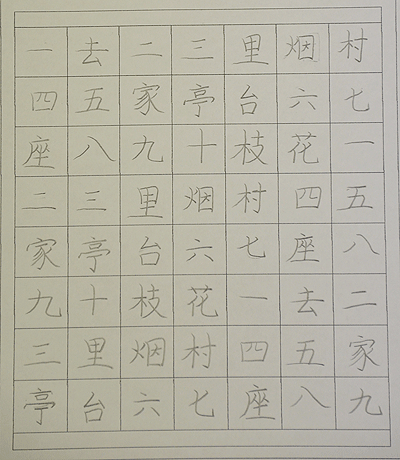 一去二三里烟村
四五家亭台六七
座八九十枝花一
二三里烟村四五
家亭台六七座八
九十枝花一去二
三里烟村四五家
亭台六七座八九